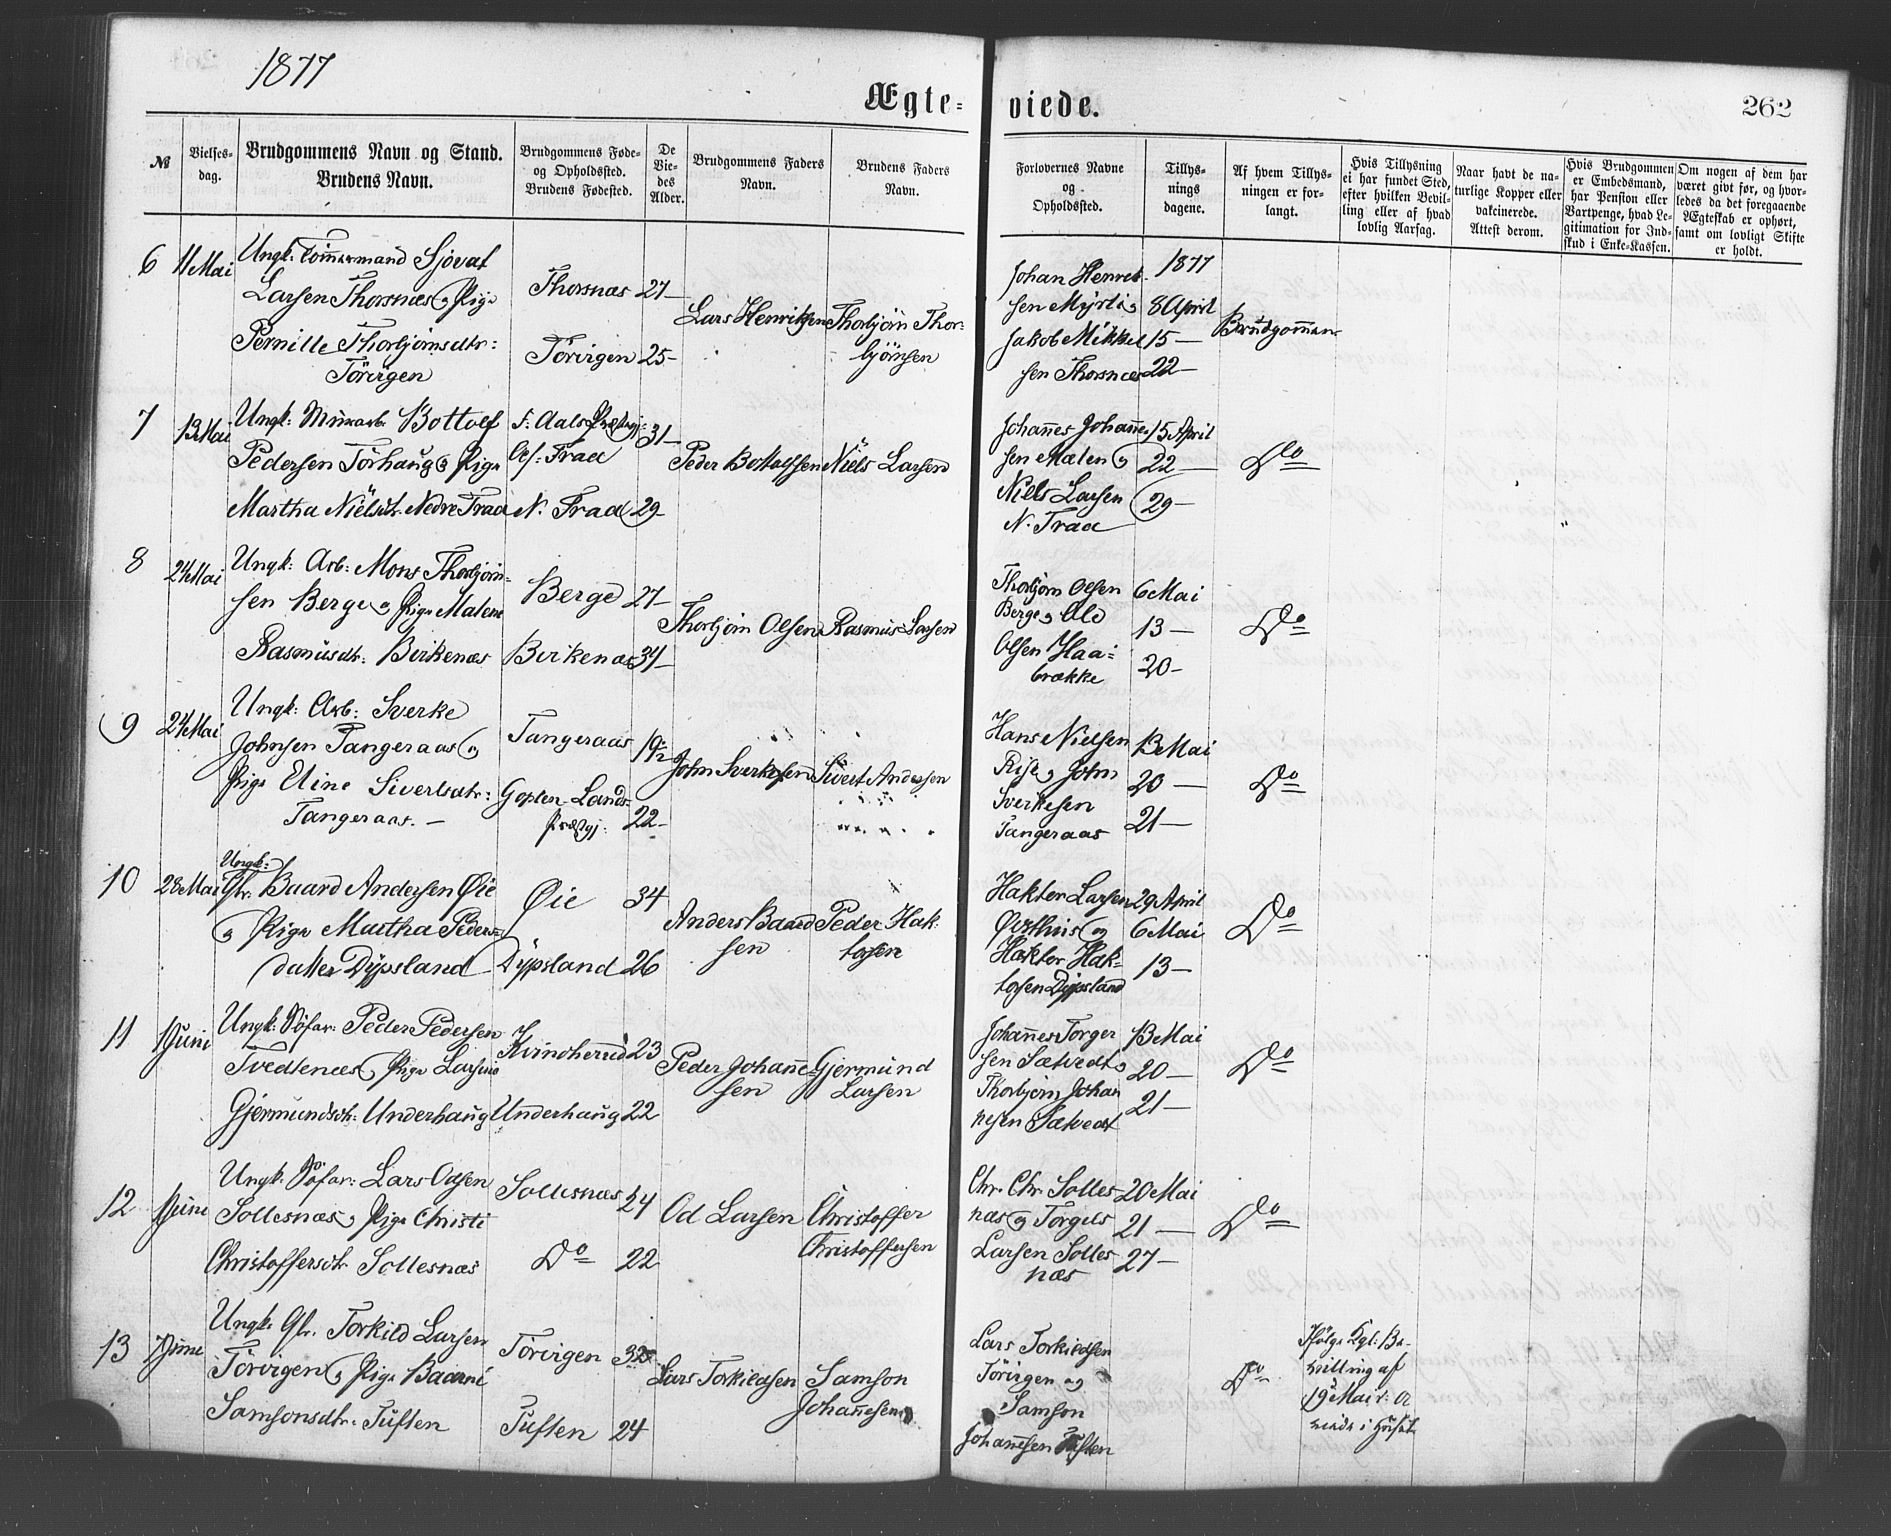 1877
Ægte-
viede.
262
№
Vielses-
dag.
Brudgommens Navn og Stand.
Brudens Navn.
Brudgommens Føde-
og Opholdssted.
Brudens Fødested.
De
Vie-
des
Alder.
Brudgommens Faders
Navn.
Brudens Faders
Navn.
Forlovernes Navne
og
Opholdssted.
Tillys-
nings
dagene.
Af hvem Tillys-
ningen er for-
langt.
Hvis Tillysning
ei har fundet Sted,
efter hvilken Bevil-
ling eller af hvad
lovlig Aarsag.
Naar havt de na-
turlige Kopper eller
vakcinerede.
Attest derom.
Hvis Brudgommen
er Embedsmand,
har Pension eller
Vartpenge, hvad Le-
gitimation for Ind-
skud i Enke-Kassen.
Om nogen af dem har
været gift før, og hvor-
ledes da det foregaaende
Ægteskab er ophørt,
samt om lovligt Skifte
er holdt.
6
11 Mai
Ungk: Tømmermand Sjovat
Larsen Thorsnæs og Pige
Pernille Thorbjørnsdtr:
Törvigen
Thorsnæs 27
Törvigen 25
Lars Henriksen
Thorbjörn Thor-
björnsen
Johan Henrik-
sen Myrti og
Jakob Mikkel
sen Thorsnæs
1877
8 April
15
22
Brudgommen
7
13 Mai
Ungk: Murarb. Bottolf
Pedersen Törhaug og Pige
Martha Nielsdtr. Nedre Traa
F. Aals Præstgj:
Of. Traa
N. Traa
31
29
Peder Bottolfsen
Niels Larsen
Johannes Johannes
sen Mælen og
Niels Larsen
N. Traa
15 April
22
29
Do
8
24 Mai
Ungk: Arb: Mons Thorbjörn-
sen Berge og Pige Malene
Rasmusdtr. Birkenæs
Berge 27
Birkenæs 31
Thorbjörn Olsen
Rasmus Larsen
Thorbjörn Olsen
Berge og Ole
Olsen Haa-
brække
6 Mai
13
20
Do
9
24 Mai
Ungk: Arb: Sverke
Johnsen Tangeraas og
Pige Eline Sivertsdtr:
Tangeraas.
Tangeraas 19½
Gopten Lands
Præstgj. 22
John Sverkesen
Sivert Andersen
Hans Nielsen
Rise og John
Sverkesen
Tangeraas
13 Mai
20
21
Do
10
28 Mai
Ungk:
Gbr. Baard Andersen Øie
og Pige Martha Peders-
datter Dypsland
Øie 34
Dypsland 26
Anders Baard
sen
Peder Hak-
torsen
Haktor Larsen
Østhus og
Haktor Hak-
torsen Dypsland
29 April
6 Mai
13
Do
11
1 Juni
Ungk: Söfar: Peder Pedersen
Tvedtenæs og Pige Larsine
Gjermundsdtr: Underhaug
Kvindherred 23
Underhaug 22
Peder Johanne-
sen
Gjermund
Larsen
Johannes Torger
sen Sætvedt og
Thorbjörn Johan
nesen Sætvedt
13 Mai
20
21
Do
12
1 Juni
Ungk. Söfar: Lars Odsen
Sollesnæs og Pige Christi
Christoffersdtr. Sollesnæs
Sollesnæs 24
Do 22
Od Larsen
Christoffer
Christoffersen
Chr. Chr. Solles
næs og Torgels
Larsen Solles
næs
20 Mai
21
27
Do
13
7 Juni
Ungk. Gbr. Torkild Larsen
Törvigen og Pige Baarni
Samsonsdtr: Tuften
Törvigen
Tuften 24
Lars Torkildsen
Samson
Johannesen
Lars Torkildsen
Törvigen og
Samson
Johannesen Tuften
Do
Ifölge Kgl: Be-
villing af
19 Mai
viede i Huset